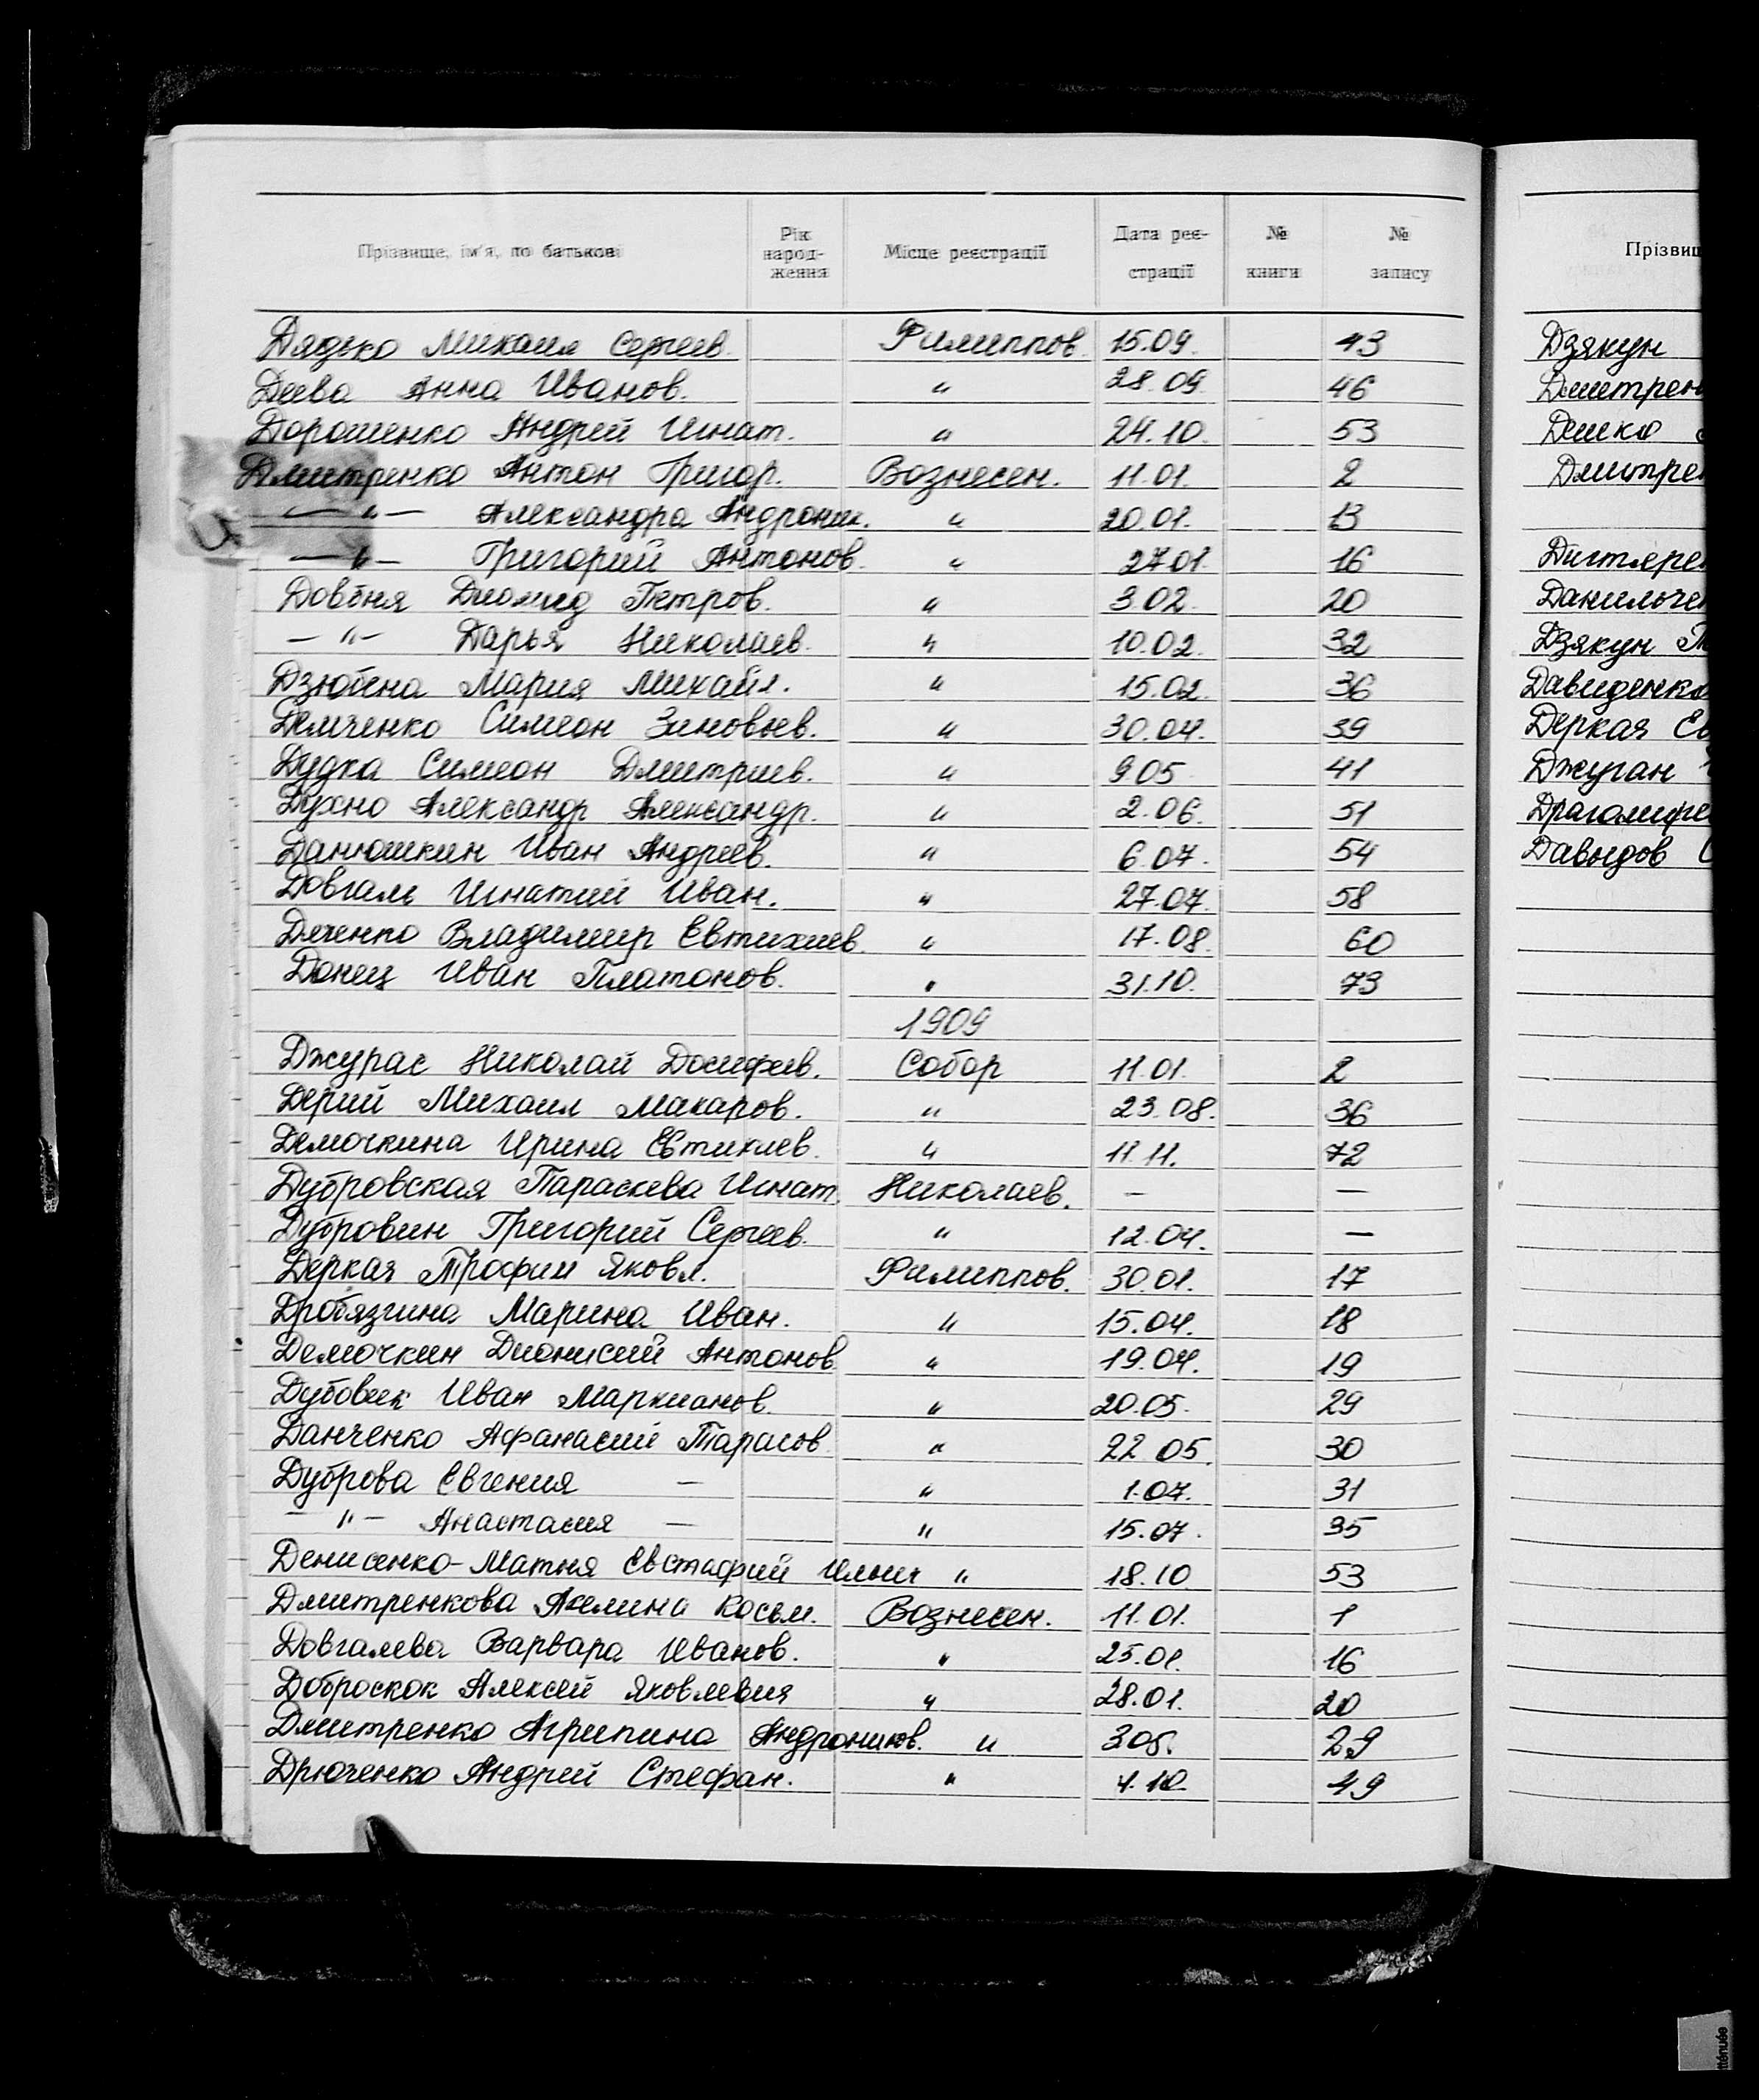 Прізвище, ім'я, по батькові Рік народ-ження Місце реєстрації Дата реє-страції № книги № запису
Дядько Михаил Сергеев. Филиппов. 15.09. 43
Деева Анна Иванов. " 28.09 46
Дорошенко Андрей Игнат. " 24.10. 53
Дмитренко Антон Григор. Вознесен. 11.01. 2
— " — Александра Андроник. " 20.01. 13
— " — Григорий Антонов. " 27.01. 16
Довбня Диомид Петров. " 3.02. 20
— " — Дарья Николаев. " 10.02. 32
Дзюбина Мария Михайл. " 15.02. 36
Демченко Симеон Зиновьев. " 30.04. 39
Дудка Симеон Дмитриев. " 9.05 41
Духно Александр Александр. " 2.06. 51
Данюшкин Иван Андреев. " 6.07. 54
Довгаль Игнатий Иван. " 27.07. 58
Дяченко Владимир Евтихиев. " 17.08. 60
Донец Иван Платонов. " 31.10. 73
1909
Джурас Николай Досифеев. Собор 11.01. 2
Дерий Михаил Макаров. " 23.08. 36
Демочкина Ирина Евтихиев. " 11.11. 72
Дубровская Параскева Игнат. Николаев. — —
Дубровин Григорий Сергеев. " 12.04. —
Деркач Трофим Яковл. Филиппов. 30.01. 17
Дробязгина Марина Иван. " 15.04. 18
Демочкин Дионисий Антонов. " 19.04. 19
Дубовик Иван Маркианов. " 20.05. 29
Данченко Афанасий Тарасов. " 22.05. 30
Дуброва Евгения — " 1.07. 31
— " — Анастасия — " 15.07. 35
Денисенко-Матня Евстафий Ильич " 18.10 53
Дмитренкова Акелина Косьм. Вознесен. 11.01. 1
Довгалева Варвара Иванов. " 25.01. 16
Доброскок Алексей Яковлевия " 28.01. 20
Дмитренко Агрипина Андроников. " 3.05. 29
Дрюченко Андрей Стефан. " 4.10. 49
Прізвищ
Дзякун
Дмитрен
Демко
Дмитрен
Дигтяре
Данильче
Дзякун
Давиденко
Деркач Ев
Джуган
Драгомире
Давыдов